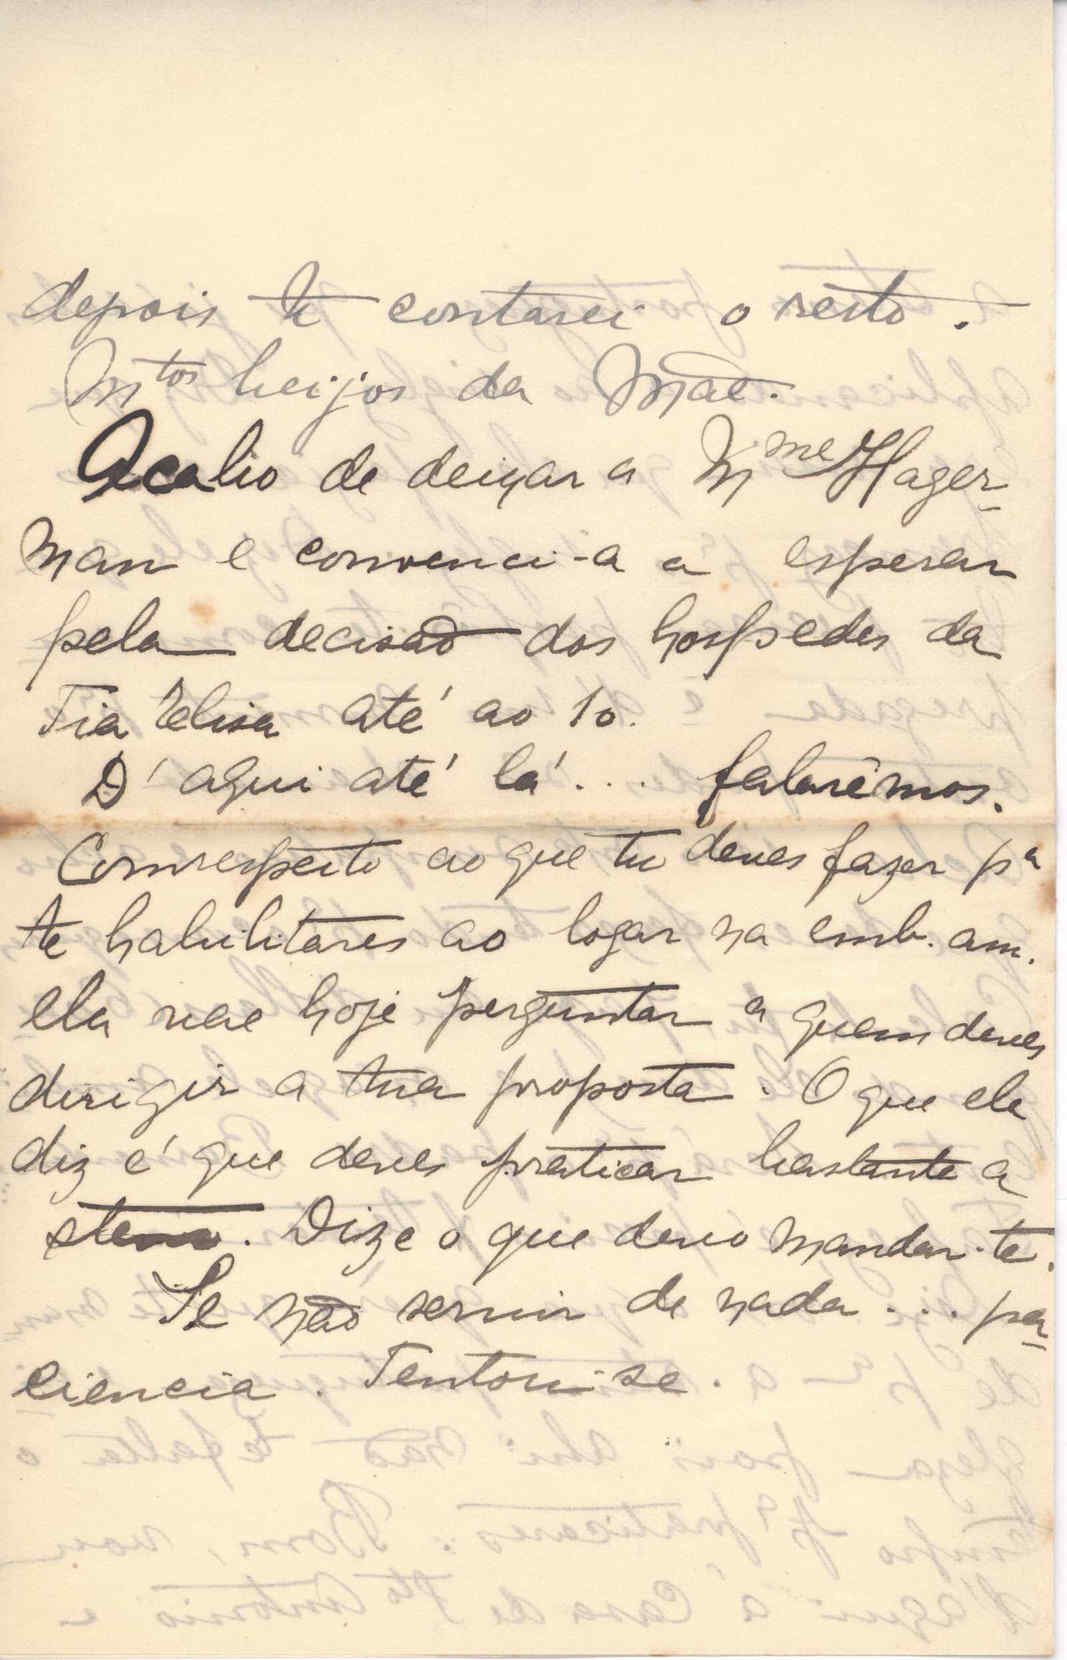 depois te contarei o resto.
Mtos beijos da Mãe.
Acabo de deixar a Mme Hager-
man e convenci-a a esperar
pela decisão dos hospedes da
Tia Elisa até ao 10.
D'aqui até lá... falarêmos.
Com respeito ao que tu deves fazer pa
te habilitares ao logar na emb. am.
ela vae hoje perguntar a quem deves
dirigir a tua proposta. O que ela
diz é que deves praticar bastante a
steno. Dize o que devo mandar-te.
Se não servir de nada... pa-
ciencia. Tentou-se.